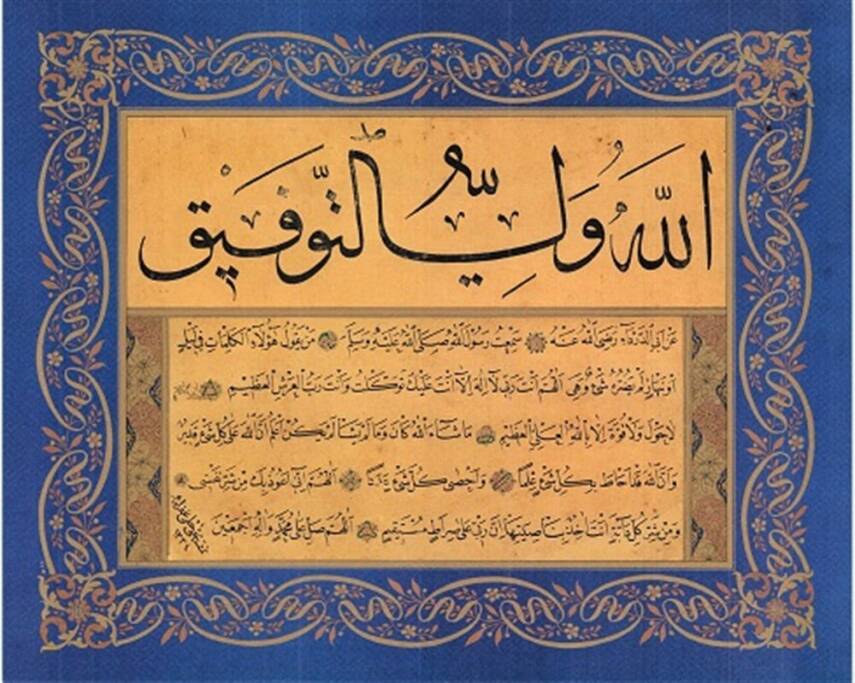 اللهُ وَلِيُّ التَّوفِيق
عن ابي الدرداء رضي الله عنه سمعت رسول الله صلى الله عليه وسلم من يقول هؤلاء الكلمات في ليله
او نهار لم يضره شيء وهي اللهم انت ربي لا اله الا انت عليك توكلت وانت رب العرش العظيم
لا حول ولا قوة الا بالله العلي العظيم ما شاء الله كان وما لم يشأ لم يكن اعلم ان الله على كل شيء قدير
وان الله قد احاط بكل شيء علما واحصى كل شيء عددا اللهم اني اعوذ بك من شر نفسي
ومن شر كل دابة انت اخذ بناصيتها ان ربي على صراط مستقيم اللهم صل على محمد واله اجمعين